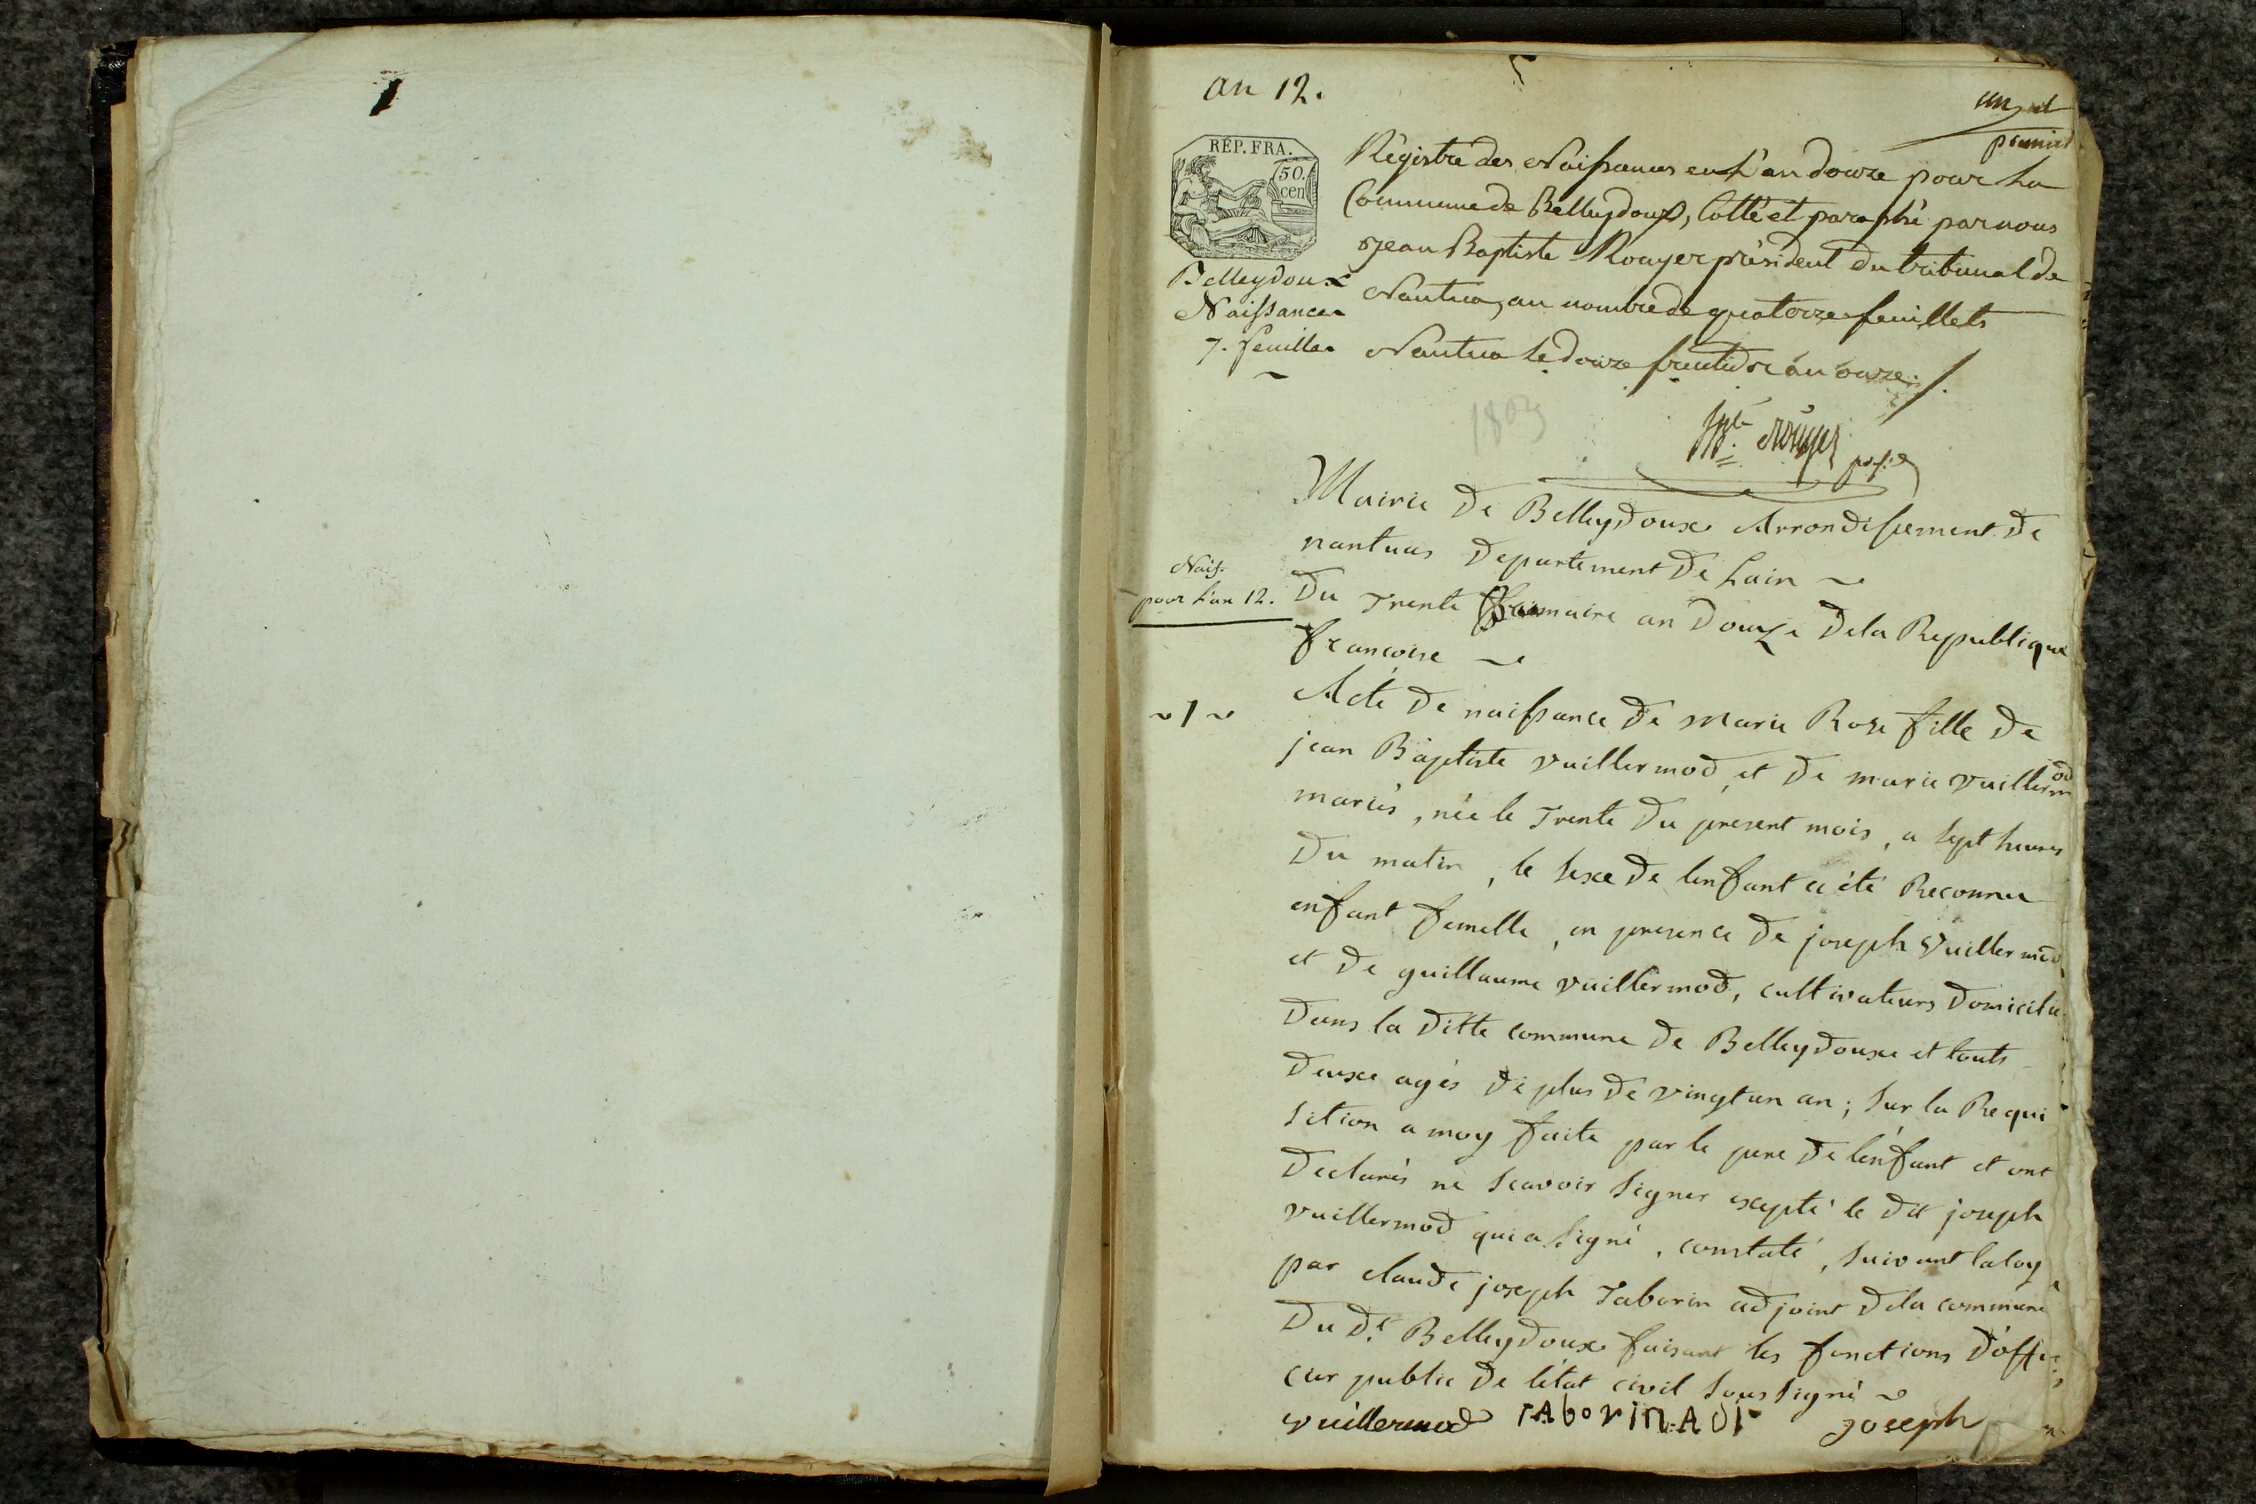 an 12.
un et
premier
RÉP. FRA.
50.
cen
Régistre des Naissances en L'an douze pour La
Commune de Belleydoux, Cotté et paraphé par nous
Jean Baptiste Rouyer président du tribunal de
Nantua, au nombre de quatorze feuillets
Nantua le douze fructidor an onze ./.
Belleydoux
Naissances
7. feuilles
1803
Jn Bte Rouyer
Mairie De Belleydoux Arrondissement De
nantuas Departement De Lain
Nais.
pour l'an 12.
Du Trente maire an Douze Dela Republique
francoise
~ 1 ~
Acte De naissance De marie Rose fille De
jean Baptiste vuillermod, et De marie vuillermod
mariés, née le Trente Du present mois, a sept heures
Du matin, le sexe De lenfant a été Reconnu
enfant femelle, en presence De joseph vuillermod
et De guillaume vuillermod, cultivateurs Domicilié
Dans la Ditte commune De Belleydoux et touts
Deuxe agés De plus De vingt un an; sur la Requi
sition a moy faite par le pere De lenfant et ont
Declarés ne scavoir signer excepté le dit joseph
vuillermod qui a signé, constaté, suivant la loy
par claude joseph Taborin adjoint Dela commune
Du Dt Belleydoux faisant les fonctions D'offi
cier public De létat civil soussigné
vuillermod TAborin ADj joseph